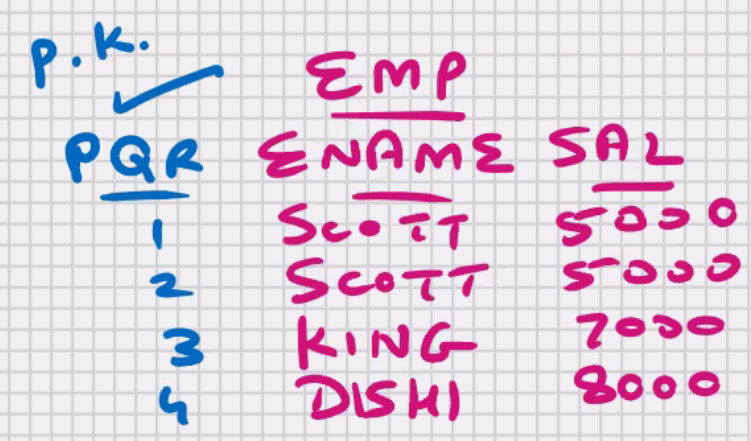 P.K.
EMP
PQR ENAME SAL
1 SCOTT 5000
2 SCOTT 5000
3 KING 7000
4 DISHI 8000